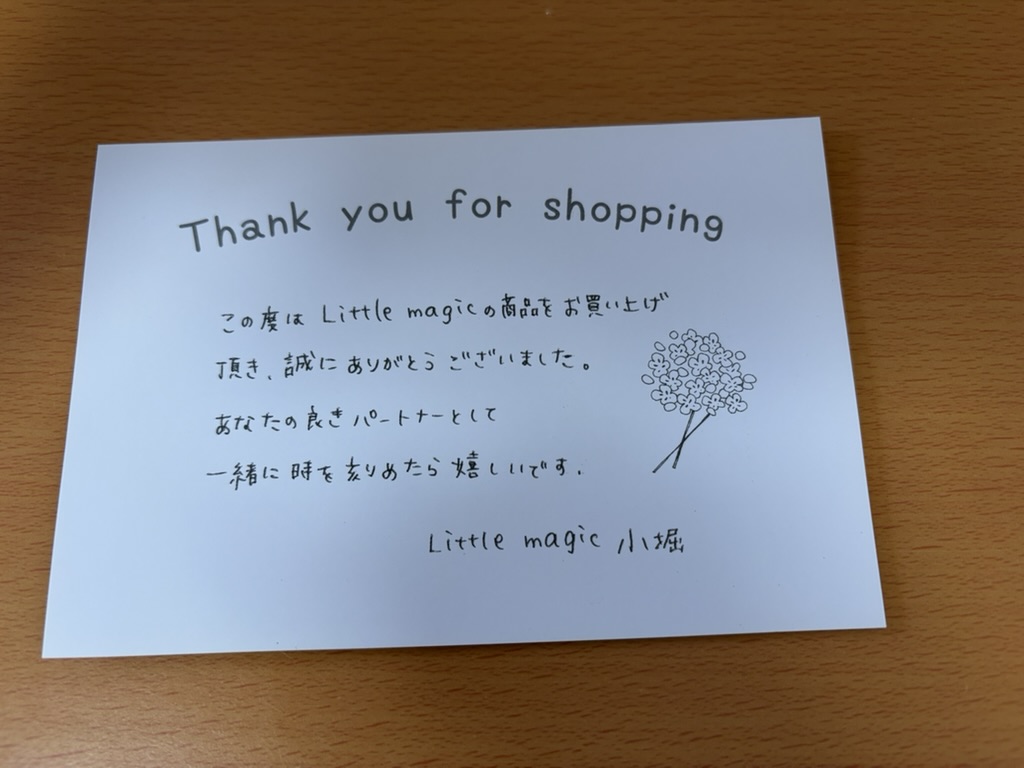 Thank you for shopping
この度は Little magicの商品をお買い上げ
頂き、誠にありがとうございました。
あなたの良きパートナーとして
一緒に時を刻めたら嬉しいです.
Little magic 小堀